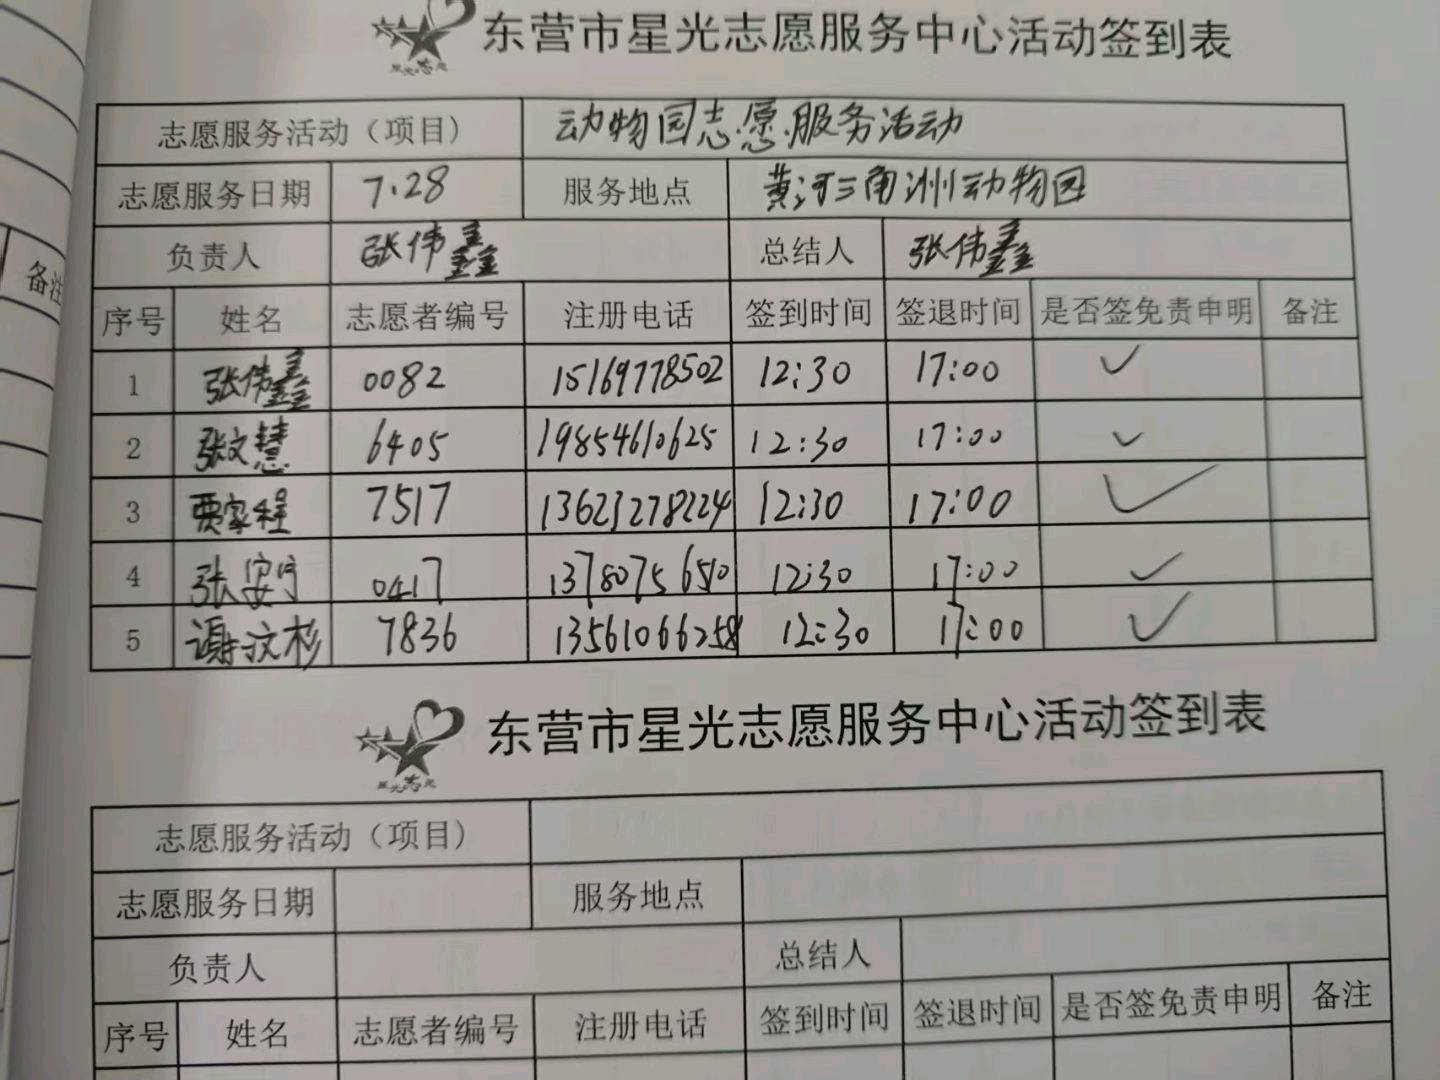 东营市星光志愿服务中心活动签到表
志愿服务活动（项目） 动物园志愿服务活动
志愿服务日期 7.28 服务地点 黄河三角洲动物园
负责人 张伟鑫 总结人 张伟鑫
备注
序号 姓名 志愿者编号 注册电话 签到时间 签退时间 是否签免责申明 备注
1 张伟鑫 0082 15169778502 12:30 17:00 ✓
2 张文慧 6405 19854610625 12:30 17:00 ✓
3 贾家程 7517 13623278224 12:30 17:00 ✓
4 张安宁 0417 13780756510 12:30 17:00 ✓
5 谢汶杉 7836 13561066258 12:30 17:00 ✓
东营市星光志愿服务中心活动签到表
志愿服务活动（项目）
志愿服务日期 服务地点
负责人 总结人
序号 姓名 志愿者编号 注册电话 签到时间 签退时间 是否签免责申明 备注